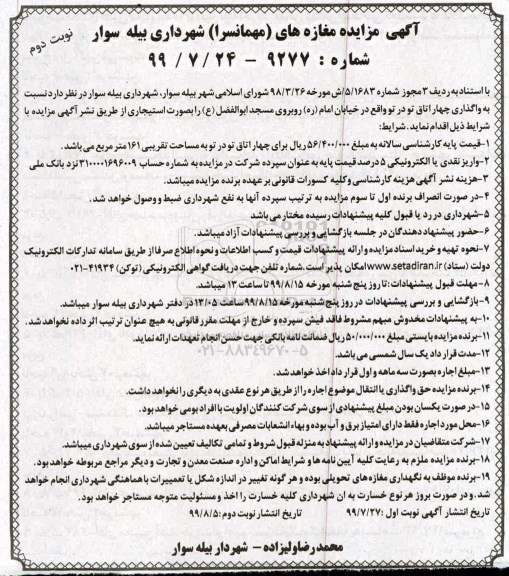 آگهی مزایده مغازه های (مهمانسرا) شهرداری بیله سوار
نوبت دوم
شماره : ۹۲۷۷ - ۲۴ / ۷ / ۹۹
با استناد به ردیف ۳ مجوز شماره ۵/۱۶۸۳/ش مورخه ۹۸/۳/۲۶ شورای اسلامی شهر بیله سوار، شهرداری بیله سوار در نظر دارد نسبت
به واگذاری چهار اتاق تو در تو واقع در خیابان امام (ره) روبروی مسجد ابوالفضل (ع) را بصورت استیجاری از طریق نشر آگهی مزایده با
شرایط ذیل اقدام نماید .شرایط:
۱-قیمت پایه کارشناسی سالانه به مبلغ ۵۶/۴۰۰/۰۰۰ ریال برای چهار اتاق تو در تو به مساحت تقریبی ۱۶۱ متر مربع می باشد.
۲-واریز نقدی یا الکترونیکی ۵ درصد قیمت پایه به عنوان سپرده شرکت در مزایده به شماره حساب ۳۱۰۰۰۰۱۶۹۶۰۰۹ نزد بانک ملی
۳-هزینه نشر آگهی هزینه کارشناسی وکلیه کسورات قانونی بر عهده برنده مزایده میباشد.
۴-در صورت انصراف برنده اول تا سوم مزایده به ترتیب سپرده آنها به نفع شهرداری ضبط و وصول خواهد شد.
۵-شهرداری در رد یا قبول کلیه پیشنهادات رسیده مختار می باشد
۶-حضور پیشنهاد دهندگان در جلسه بازگشایی و بررسی پیشنهادات آزاد میباشد.
۷-نحوه تهیه و خرید اسناد مزایده و ارائه پیشنهادات قیمت و کسب اطلاعات و نحوه اطلاع صرفا از طریق سامانه تدارکات الکترونیک
دولت (ستاد) www.setadiran.ir امکان پذیر است .شماره تلفن جهت دریافت گواهی الکترونیکی (توکن) ۴۱۹۳۴-۰۲۱
۸-مهلت قبول پیشنهادات :تا روز پنج شنبه مورخه ۹۹/۸/۱۵ تا ساعت ۱۳ میباشد.
۹-بازگشایی و بررسی پیشنهادات در روز پنج شنبه مورخه ۹۹/۸/۱۵ ساعت ۱۳/۰۵ در دفتر شهرداری بیله سوار میباشد.
۱۰-به پیشنهادات مخدوش مبهم مشروط فاقد فیش سپرده و خارج از مهلت مقرر قانونی به هیچ عنوان ترتیب اثر داده نخواهد شد.
۱۱-برنده مزایده بایستی مبلغ ۵۰/۰۰۰/۰۰۰ ریال ضمانت نامه بانکی جهت حسن انجام تعهدات ارائه نماید.
۱۲-مدت قرار داد یک سال شمسی می باشد.
۱۳-مبلغ اجاره بصورت سه ماهه و اول قرار داد اخذ خواهد شد.
۱۴-برنده مزایده حق واگذاری یا انتقال موضوع اجاره را از طریق هر نوع عقدی به دیگری را نخواهد داشت.
۱۵-در صورت یکسان بودن مبلغ پیشنهادی از سوی شرکت کنندگان اولویت با افراد بومی خواهد بود.
۱۶-محل مورد اجاره فقط دارای امتیاز برق و آب بوده و بهاء انشعابات مصرفی بعهده مستاجر میباشد.
۱۷-شرکت متقاضیان در مزایده و ارائه پیشنهاد به منزله قبول شروط و تمامی تکالیف تعیین شده از سوی شهرداری میباشد.
۱۸-برنده مزایده ملزم به رعایت کلیه آیین نامه ها و شرایط اماکن و اداره صنعت معدن و تجارت و دیگر مراجع مربوطه خواهد بود.
۱۹-برنده موظف به نگهداری مغازه های تحویلی بوده و هر گونه تغییر در اندازه شکل یا تعمییرات با هماهنگی شهرداری انجام خواهد
شد. و در صورت بروز هر نوع خسارت به ان شهرداری کلیه خسارت را اخذ و مسئولیت متوجه مستاجر خواهد بود.
تاریخ انتشار آگهی نوبت اول :۹۹/۷/۲۷ تاریخ انتشار نوبت دوم :۹۹/۸/۵
محمدرضا ولیزاده - شهردار بیله سوار
۰۲۱-۸۸۳۴۹۶۷۰-۵